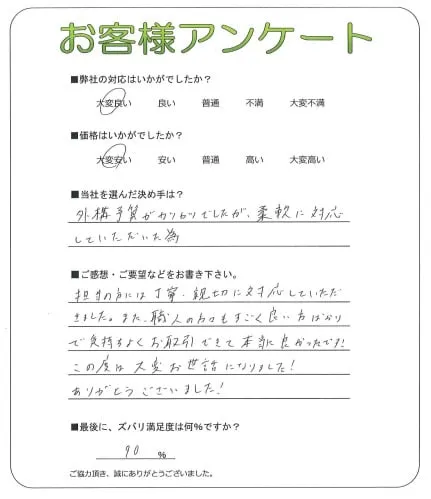 お客様アンケート
■弊社の対応はいかがでしたか?
大変良い 良い 普通 不満 大変不満
■価格はいかがでしたか?
大変安い 安い 普通 高い 大変高い
■当社を選んだ決め手は?
外構予算がかりかりでしたが、柔軟に対応
していただいた為
■ご感想・ご要望などをお書き下さい。
担当の方には丁寧・親切に対応していただ
きました。また、職人の方々もすごく良い方ばかり
で気持ちよくお取引できて本当に良かったです!
この度は大変お世話になりました!
ありがとうございました!
■最後に、ズバリ満足度は何%ですか?
90 %
ご協力頂き、誠にありがとうございました。